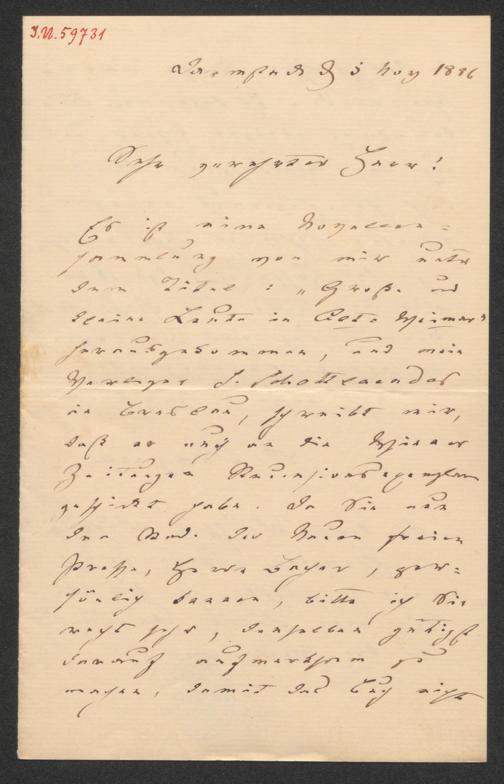 J.N. 59731
Darmstadt d 5 Nov 1886
Sehr geehrter Herr!
Es ist eine Novellen=
sammlung von mir unter
dem Titel: „Große und
kleine Leute in Alt-Weimar“
herausgekommen, und mein
Verleger S. Schottlaender
in Breslau, schreibt mir,
daß er auch an die Wiener
Zeitungen Recensionsexemplare
geschickt habe. Da Sie nun
den Red. der Neuen freien
Presse, Herrn Bacher, per=
sönlich kennen, bitte ich Sie
recht sehr, denselben gütigst
darauf aufmerksam zu
machen, damit das Buch nicht